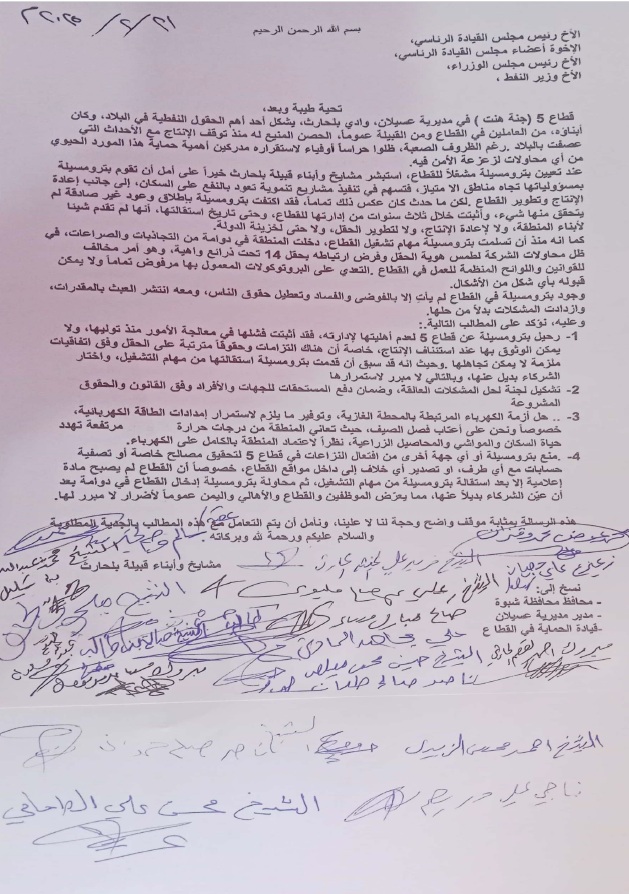 ٢٠٢٥/٢/٢١م
بسم الله الرحمن الرحيم
الأخ رئيس مجلس القيادة الرئاسي،
الإخوة أعضاء مجلس القيادة الرئاسي،
الأخ رئيس مجلس الوزراء،
الأخ وزير النفط ،
تحية طيبة وبعد،
قطاع 5 (جنة هنت ) في مديرية عسيلان، وادي بلحارث، يشكل أحد أهم الحقول النفطية في البلاد، وكان
أبناؤه، من العاملين في القطاع ومن القبيلة عموماً، الحصن المنيع له منذ توقف الإنتاج مع الأحداث التي
عصفت بالبلاد .رغم الظروف الصعبة، ظلوا حراساً أوفياء لاستقراره مدركين أهمية حماية هذا المورد الحيوي
من أي محاولات لزعزعة الأمن فيه.
عند تعيين بترومسيلة مشغلاً للقطاع، استبشر مشايخ وأبناء قبيلة بلحارث خيراً على أمل أن تقوم بترومسيلة
بمسؤولياتها تجاه مناطق الا متياز، فتسهم في تنفيذ مشاريع تنموية تعود بالنفع على السكان، إلى جانب إعادة
الإنتاج وتطوير القطاع .لكن ما حدث كان عكس ذلك تماماً، فقد اكتفت بترومسيلة بإطلاق وعود غير صادقة لم
يتحقق منها شيء، وأثبتت خلال ثلاث سنوات من إدارتها للقطاع، وحتى تاريخ استقالتها، أنها لم تقدم شيئا
لأبناء المنطقة، ولا لإعادة الإنتاج، ولا لتطوير الحقل، ولا حتى لخزينة الدولة.
كما انه منذ أن تسلمت بترومسيلة مهام تشغيل القطاع، دخلت المنطقة في دوامة من التجاذبات والصراعات، في
ظل محاولات الشركة لطمس هوية الحقل وفرض ارتباطه بحقل 14 تحت ذرائع واهية، وهو أمر مخالف
للقوانين واللوائح المنظمة للعمل في القطاع .التعدي على البروتوكولات المعمول بها مرفوض تماماً ولا يمكن
قبوله بأي شكل من الأشكال.
وجود بترومسيلة في القطاع لم يأتِ إلا بالفوضى والفساد وتعطيل حقوق الناس، ومعه انتشر العبث بالمقدرات،
وازدادت المشكلات بدلاً من حلها.
وعليه، نؤكد على المطالب التالية.:
1- رحيل بترومسيلة عن قطاع 5 لعدم أهليتها لإدارته، فقد أثبتت فشلها في معالجة الأمور منذ توليها، ولا
يمكن الوثوق بها عند استئناف الإنتاج، خاصة أن هناك التزامات وحقوقاً مترتبة على الحقل وفق اتفاقيات
ملزمة لا يمكن تجاهلها .وحيث انه قد سبق أن قدمت بترومسيلة استقالتها من مهام التشغيل، واختار
الشركاء بديل عنها، وبالتالي لا مبرر لاستمرارها
2- تشكيل لجنة لحل المشكلات العالقة، وضمان دفع المستحقات للجهات والأفراد وفق القانون والحقوق
المشروعة
3- .. حل أزمة الكهرباء المرتبطة بالمحطة الغازية، وتوفير ما يلزم لاستمرار إمدادات الطاقة الكهربائية،
خصوصاً ونحن على أعتاب فصل الصيف، حيث تعاني المنطقة من درجات حرارة مرتفعة تهدد
حياة السكان والمواشي والمحاصيل الزراعية، نظراً لاعتماد المنطقة بالكامل على الكهرباء.
4- .منع بترومسيلة أو أي جهة أخرى من افتعال النزاعات في قطاع 5 لتحقيق مصالح خاصة أو تصفية
حسابات مع أي طرف، او تصدير أي خلاف إلى داخل مواقع القطاع، خصوصاً أن القطاع لم يصبح مادة
إعلامية إلا بعد استقالة بترومسيلة من مهام التشغيل، ثم محاولة بترومسيلة إدخال القطاع في دوامة بعد
أن عيّن الشركاء بديلاً عنها، مما يعرّض الموظفين والقطاع والأهالي واليمن عموماً لأضرار لا مبرر لها.
هذه الرسالة بمثابة موقف واضح وحجة لنا لا علينا، ونأمل أن يتم التعامل مع هذه المطالب بالجدية المطلوبة
والسلام عليكم ورحمة لله وبركاته
مشايخ وأبناء قبيلة بلحارث
نسخ إلى:
- محافظ محافظة شبوة
- مدير مديرية عسيلان
-قيادة الحماية في القطا ع
الشيخ صالح
علي مجاهد الحارثي
الشيخ احمد محسن الزبيدي
الشيخ محسن علي الطاهافي